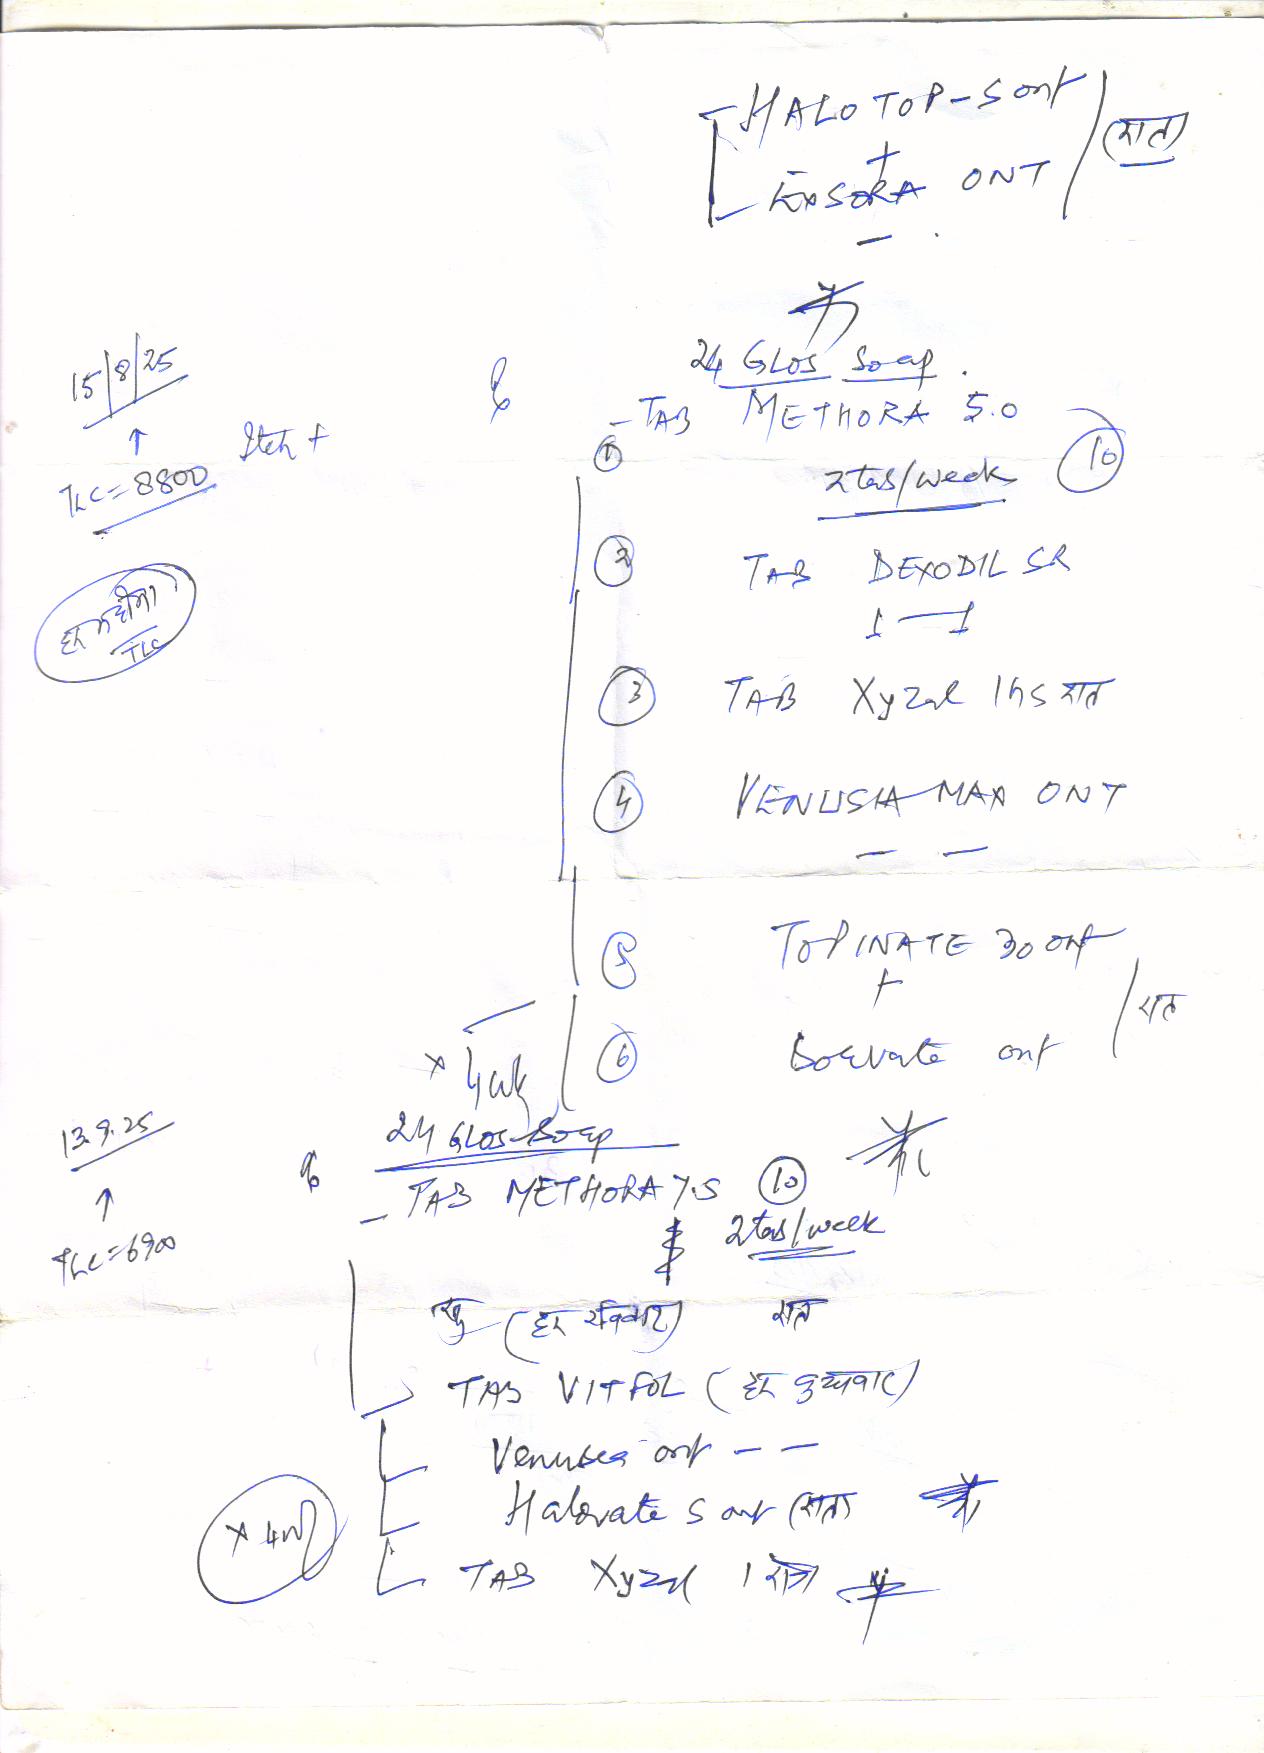 HALOTOP-S ont
+
EXSORA ONT (रात)
15/8/25
↑
TLC=8800
Itch +
हर महीना
TLC
24 GLOS Soap.
① TAB METHORA 5.0 ⑩
2tab/week
② TAB DEXODIL SR
1 — 1
③ TAB Xyzal 1hs रात
④ VENUSIA MAX ONT
— —
⑤ TOPINATE 30 ont
+
⑥ ont / रात
x 4wk
13.9.25
↑
TLC=6900
24 GLOS Soap
- TAB METHORA 7.5 ⑩
2tab/week
(हर रविवार) रात
TAB VITFOL (हर बुधवार)
Venusia ont — —
Halovate S ont (रात)
TAB Xyzal 1 रात्रि
x 4w